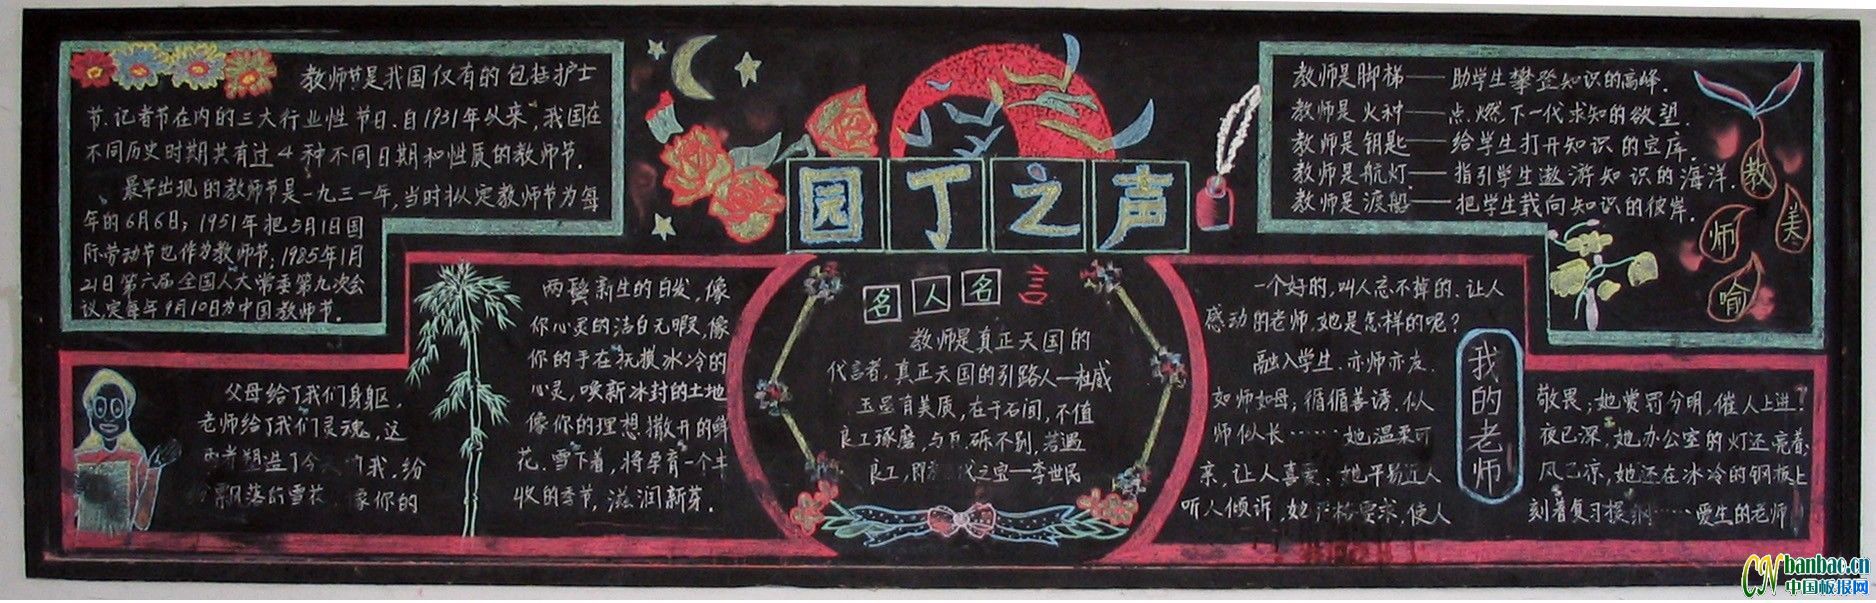 教师节是我国仅有的包括护士
节、记者节在内的三大行业性节日。自1931年以来，我国在
不同历史时期共有过4种不同日期和性质的教师节。
最早出现的教师节是一九三一年，当时拟定教师节为每
年的6月6日；1951年把5月1日国
际劳动节也作为教师节；1985年1月
21日第六届全国人大常委第九次会
议，定每年9月10日为中国教师节。
园丁之声
教师是脚梯——助学生攀登知识的高峰．
教师是火种——点燃下一代求知的欲望．
教师是钥匙——给学生打开知识的宝库．
教师是航灯．——指引学生遨游知识的海洋．
教师是渡船——把学生载向知识的彼岸．
教
师
美
喻
父母给了我们身躯，
老师给了我们灵魂，这
我，纷
飘落的雪花 像你的
两鬓新生的白发，像
你心灵的洁白无暇，像
你的手在抚摸冰冷的
心灵，唤新冰封的土地
像你的理想撒开的鲜
花．雪下着，将孕育一个丰
收的季节，滋润新芽．
名人名言
教师是真正天国的
代言者，真正天国的引路人—杜威
玉虽有美质，在于石间，不值
良工琢磨，与瓦砾不别，若遇
良工，即 代之宝—李世民
一个好的，叫人忘不掉的、让人
感动的老师，她是怎样的呢？
融入学生、亦师亦友．
如师如母；循循善诱．似
师似长……她温柔可
亲，让人喜爱；她平易近人
听人倾诉，她严格要求，使人
我的老师
敬畏；她赏罚分明，催人上进．
夜已深，她办公室的灯还亮着；
风已凉，她还在冰冷的钢板上
刻着复习提纲……爱生的老师
CN banbao.cn
中国板报网